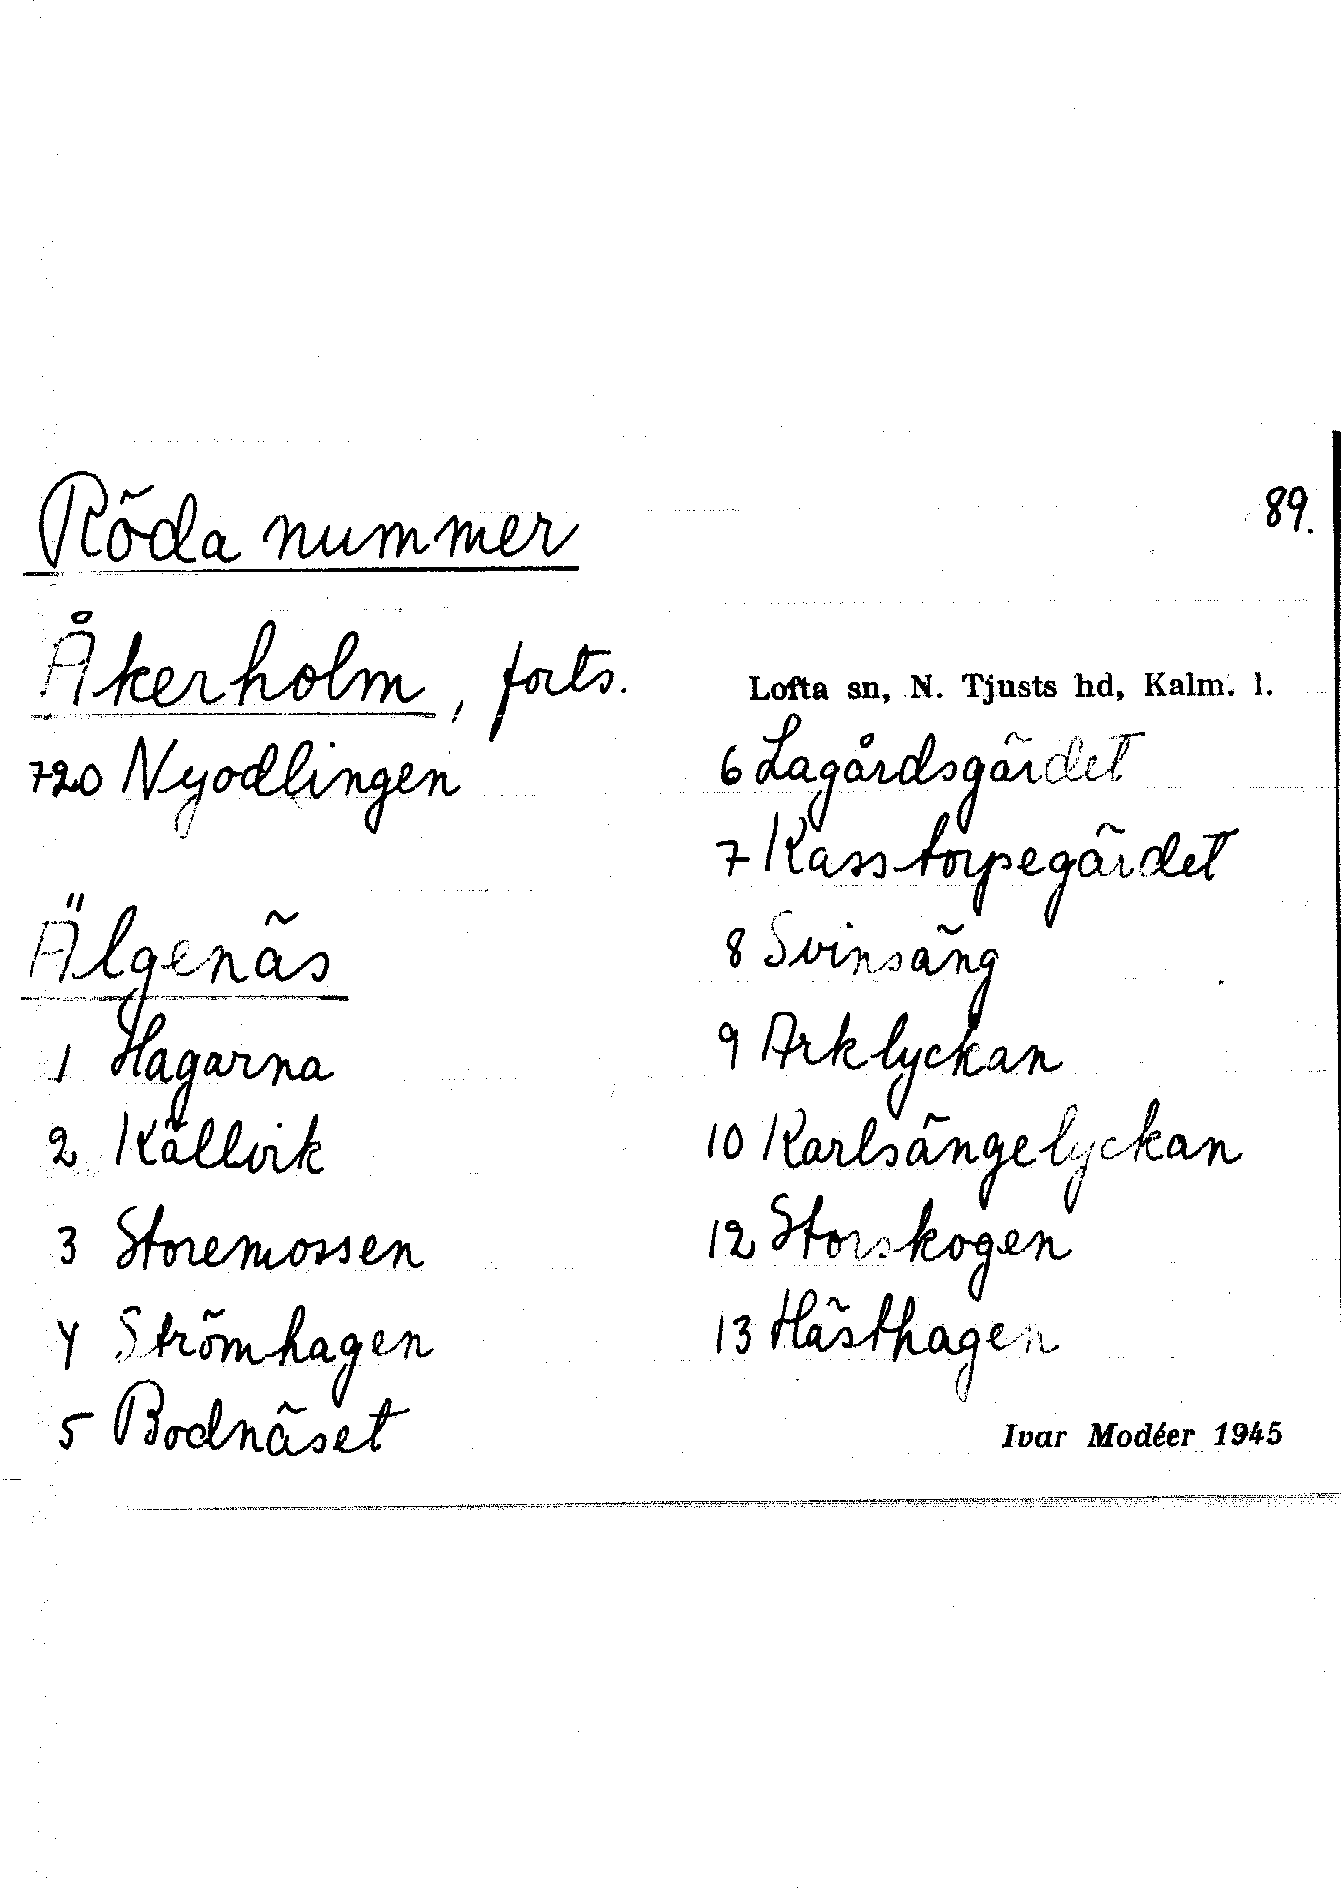 Röda nummer
89.
Åkerholm, forts.
Lofta sn, N. Tjusts hd, Kalm. l.
720 Nyodlingen
Älgenäs
1 Hagarna
2 Källvik
3 Storemossen
4 Strömhagen
5 Bodnäset
6 Lagårdsgärdet
7 Kasstorpegärdet
8 Svinsäng
9 Arklyckan
10 Karlsängelyckan
12 Storskogen
13 Hästhagen
Ivar Modéer 1945